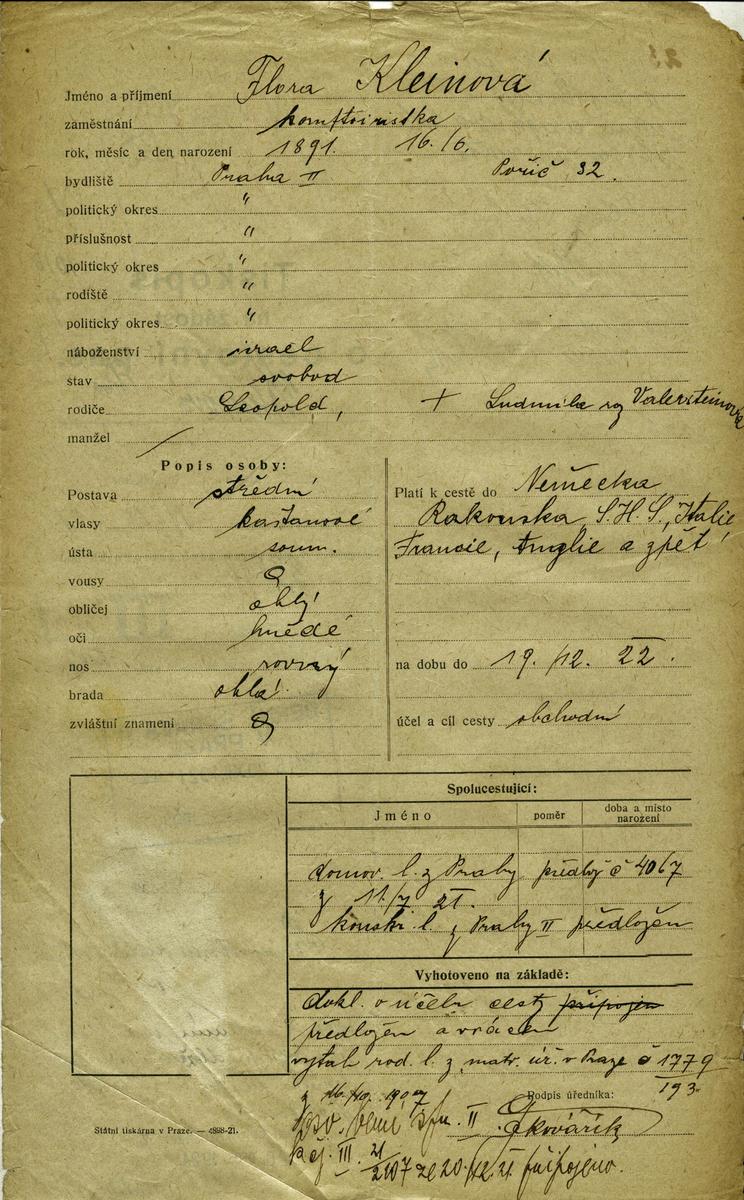 Jméno a příjmení Flora Kleinová
zaměstnání komptoiristka
rok, měsíc a den narození 1891. 16./6.
bydliště Praha II Pořič 32.
politický okres "
příslušnost "
politický okres "
rodiště "
politický okres "
náboženství israel
stav svobod
rodiče Leopold, + Ludmila roz Valersteinová
manžel /
Popis osoby:
Postava střední
vlasy kaštanové
ústa soum.
vousy
obličej oblý
oči hnědé
nos rovný
brada oblá
zvláštní znamení
Platí k cestě do Německa,
Rakouska, S.H.S., Italie
Francie, Anglie a zpět
na dobu do 19. /12. 22.
účel a cíl cesty obchodní
Spolucestující:
Jméno poměr doba a místo narození
domov. l. z Prahy předlož č 4067
z 11./7 21.
konskr. l. z Prahy II předložen
Vyhotoveno na základě:
dokl. o účelu cesty připojen
předložen a vrácen
výtah rod. l. z matr. úř. v Praze č 1779
193
Podpis úředníka:
II. Kovářík
čj. III. 21/2107 ze 20./12. 21 připojeno.
Státní tiskárna v Praze. — 4898-21.